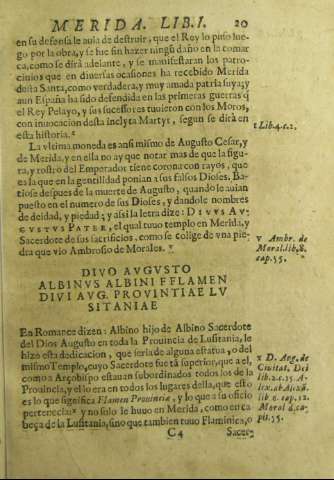 MERIDA. LIB. I. 20
en su defensa le auia de destruir, que el Rey lo puso lue-
go por la obra, y se fue sin hazer ningũ daño en la comar
ca, como se dirá adelante, y se manifestaran los patro-
cinios que en diuersas ocasiones ha recebido Merida
desta Santa, como verdadera, y muy amada patria suya; y
aun España ha sido defendida en las primeras guerras q̃
el Rey Pelayo, y sus sucessores tuuieron con los Moros,
con inuocacion desta inclyta Martyr, segun se dirà en
esta historia. t
t Lib. 4. c. 2.
La vltima moneda es ansi mismo de Augusto Cesar, y
de Merida, y en ella no ay que notar mas de que la figu-
ra, y rostro del Emperador tiene corona con rayos, que
es la que en la gentilidad ponian a sus falsos Dioses. Ba-
tiose despues de la muerte de Augusto, quando le auian
puesto en el numero de sus Dioses, y dandole nombres
de deidad, y piedad; y assi la letra dize: DIVVS AV-
GVSTVS PATER, el qual tuuo templo en Merida, y
Sacerdote de sus sacrificios, como se colige de vna pie-
dra que vio Ambrosio de Morales. v
v Ambr. de
Moral. lib. 8.
cap. 55.
DIVO AVGVSTO
ALBINVS ALBINI F FLAMEN
DIVI AVG. PROVINTIAE LV
SITANIAE
En Romance dizen: Albino hijo de Albino Sacerdote
del Dios Augusto en toda la Prouincia de Lusitania, le
hizo esta dedicacion, que seria de alguna estatua, o del
mismo Templo, cuyo Sacerdote fue tã superior, que a el,
como a Arçobispo estauan subordinados todos los de la
Prouincia, y el lo era en todos los lugares della, que esto
es lo que significa Flamen Prouinciæ, y lo que a su oficio
pertenecia: x y no solo le huuo en Merida, como en ca
beça de la Lusitania, sino que tambien tuuo Flaminica, o
x D. Aug. de
Ciuitat. Dei
lib. 2. c. 15.
cap. 12.
Moral d. ca-
pit. 55.
C4 Sacer-